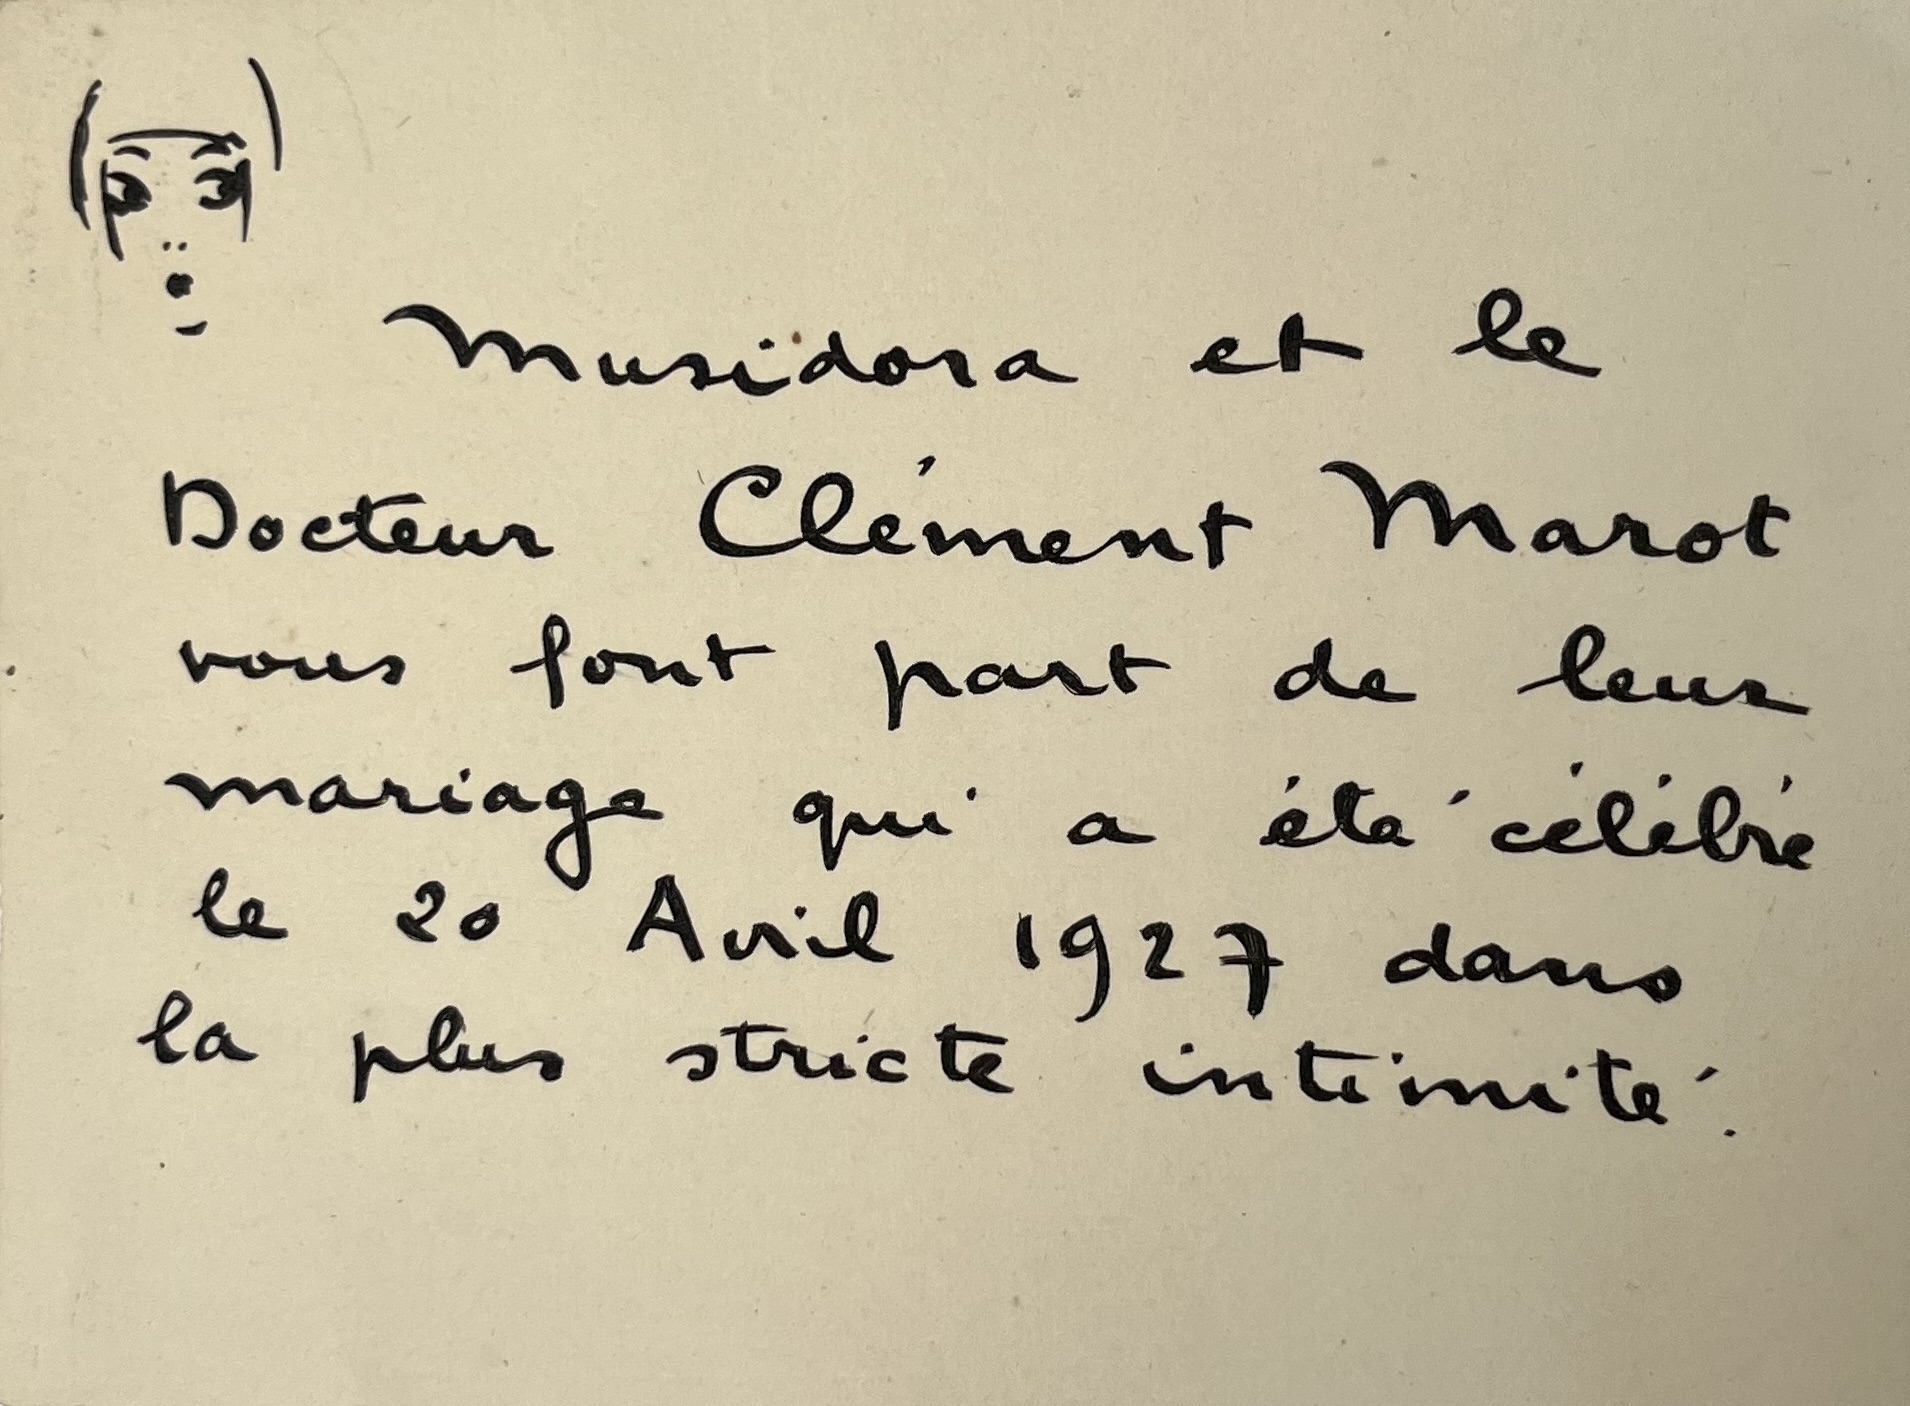 Musidora et le
Docteur Clément Marot
vous font part de leur
mariage qui a été célébré
le 20 Avril 1927 dans
la plus stricte intimité.